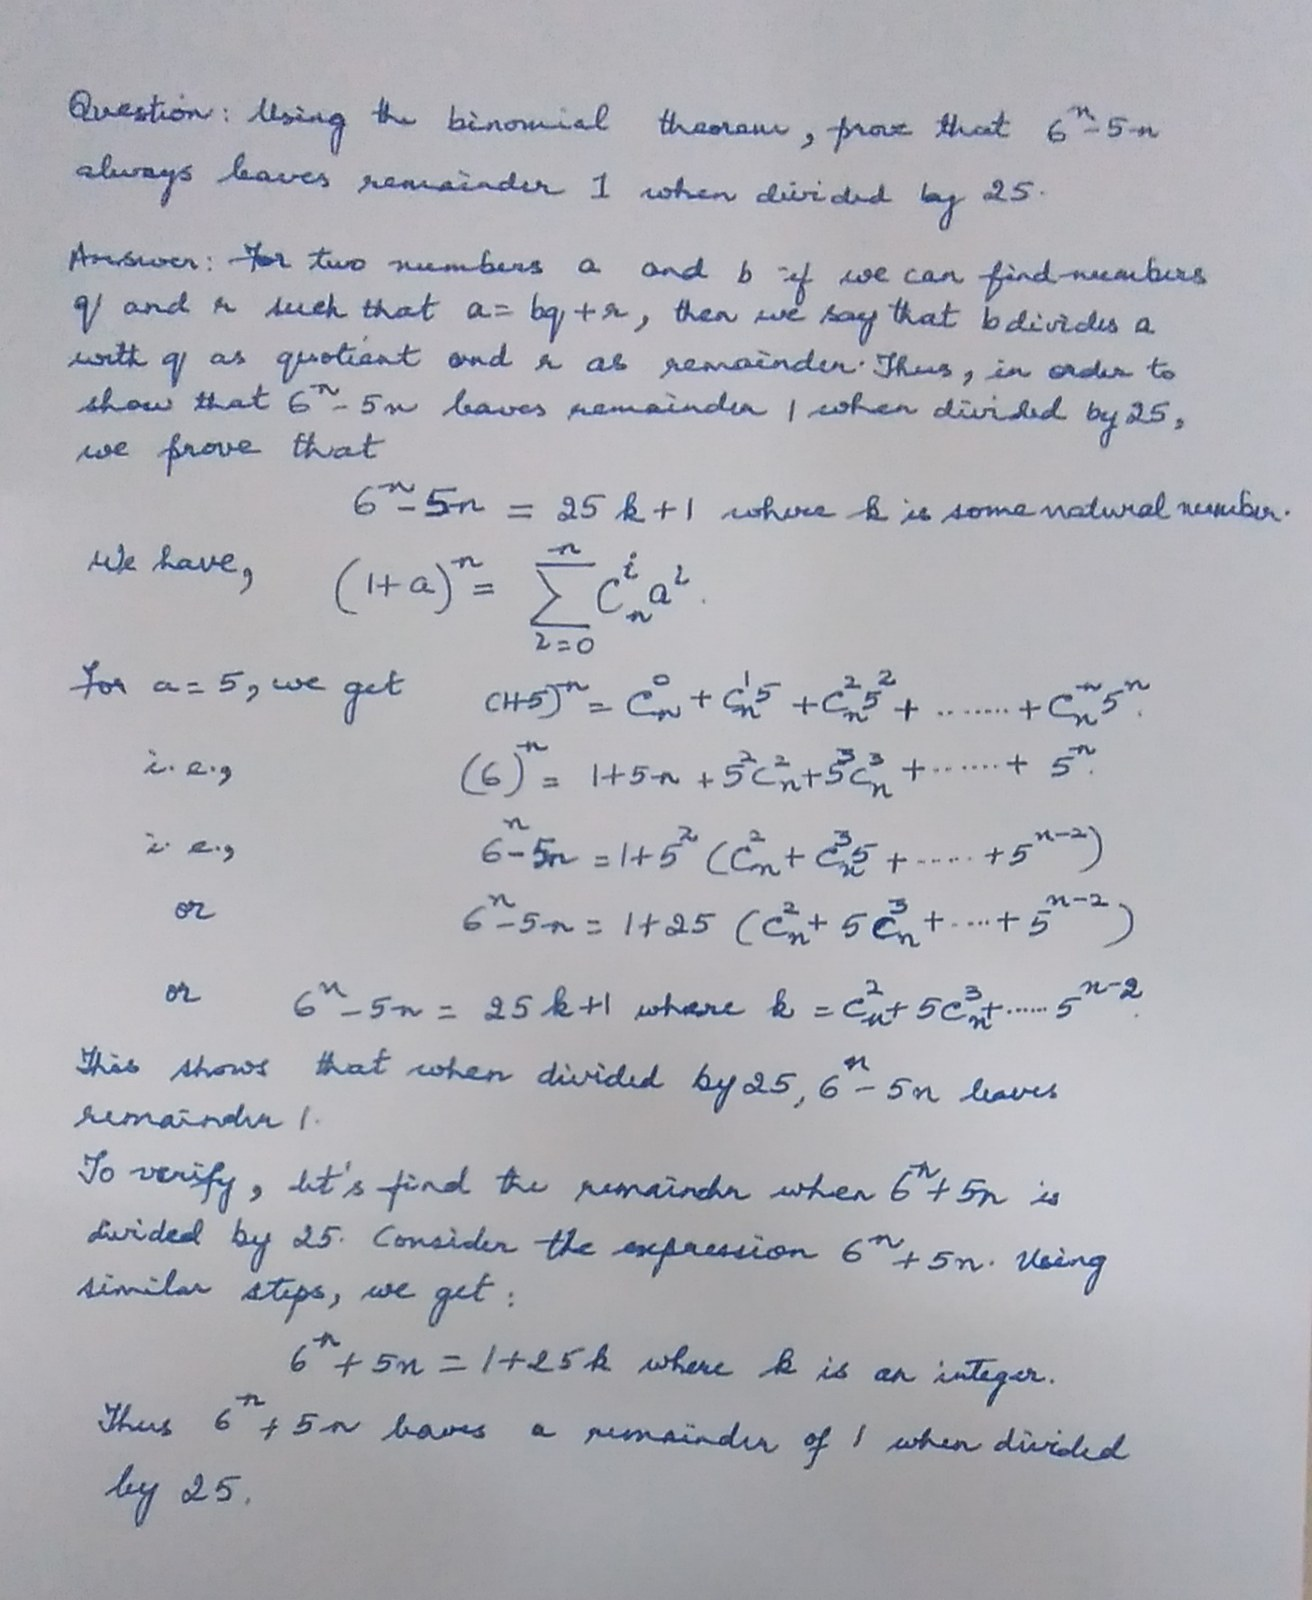 Question: Using the binomial theorem, prove that 6ⁿ-5n
always leaves remainder 1 when divided by 25.
Answer: For two numbers a and b if we can find numbers
q and r such that a = bq + r, then we say that b divides a
with q as quotient and r as remainder. Thus, in order to
show that 6ⁿ - 5n leaves remainder 1 when divided by 25,
we prove that
6ⁿ - 5n = 25k+1 where k is some natural number.
We have, (1+a)ⁿ = ∑_{i=0}^{n} C_n^i a^i.
For a = 5, we get (1+5)ⁿ = C_n^0 + C_n^1 5 + C_n^2 5^2 + ....... + C_n^n 5^n.
i.e., (6)ⁿ = 1+5n + 5^2 C_n^2 + 5^3 C_n^3 + ....... + 5^n.
i.e., 6ⁿ - 5n = 1+5^2 (C_n^2 + C_n^3 5 + ..... + 5^{n-2})
or 6ⁿ - 5n = 1+25 (C_n^2 + 5 C_n^3 + ..... + 5^{n-2})
or 6ⁿ - 5n = 25k+1 where k = C_n^2 + 5C_n^3 + ...... 5^{n-2}.
This shows that when divided by 25, 6ⁿ - 5n leaves
remainder 1.
To verify, let's find the remainder when 6ⁿ + 5n is
divided by 25. Consider the expression 6ⁿ + 5n. Using
similar steps, we get:
6ⁿ + 5n = 1+25k where k is an integer.
Thus 6ⁿ + 5n leaves a remainder of 1 when divided
by 25.